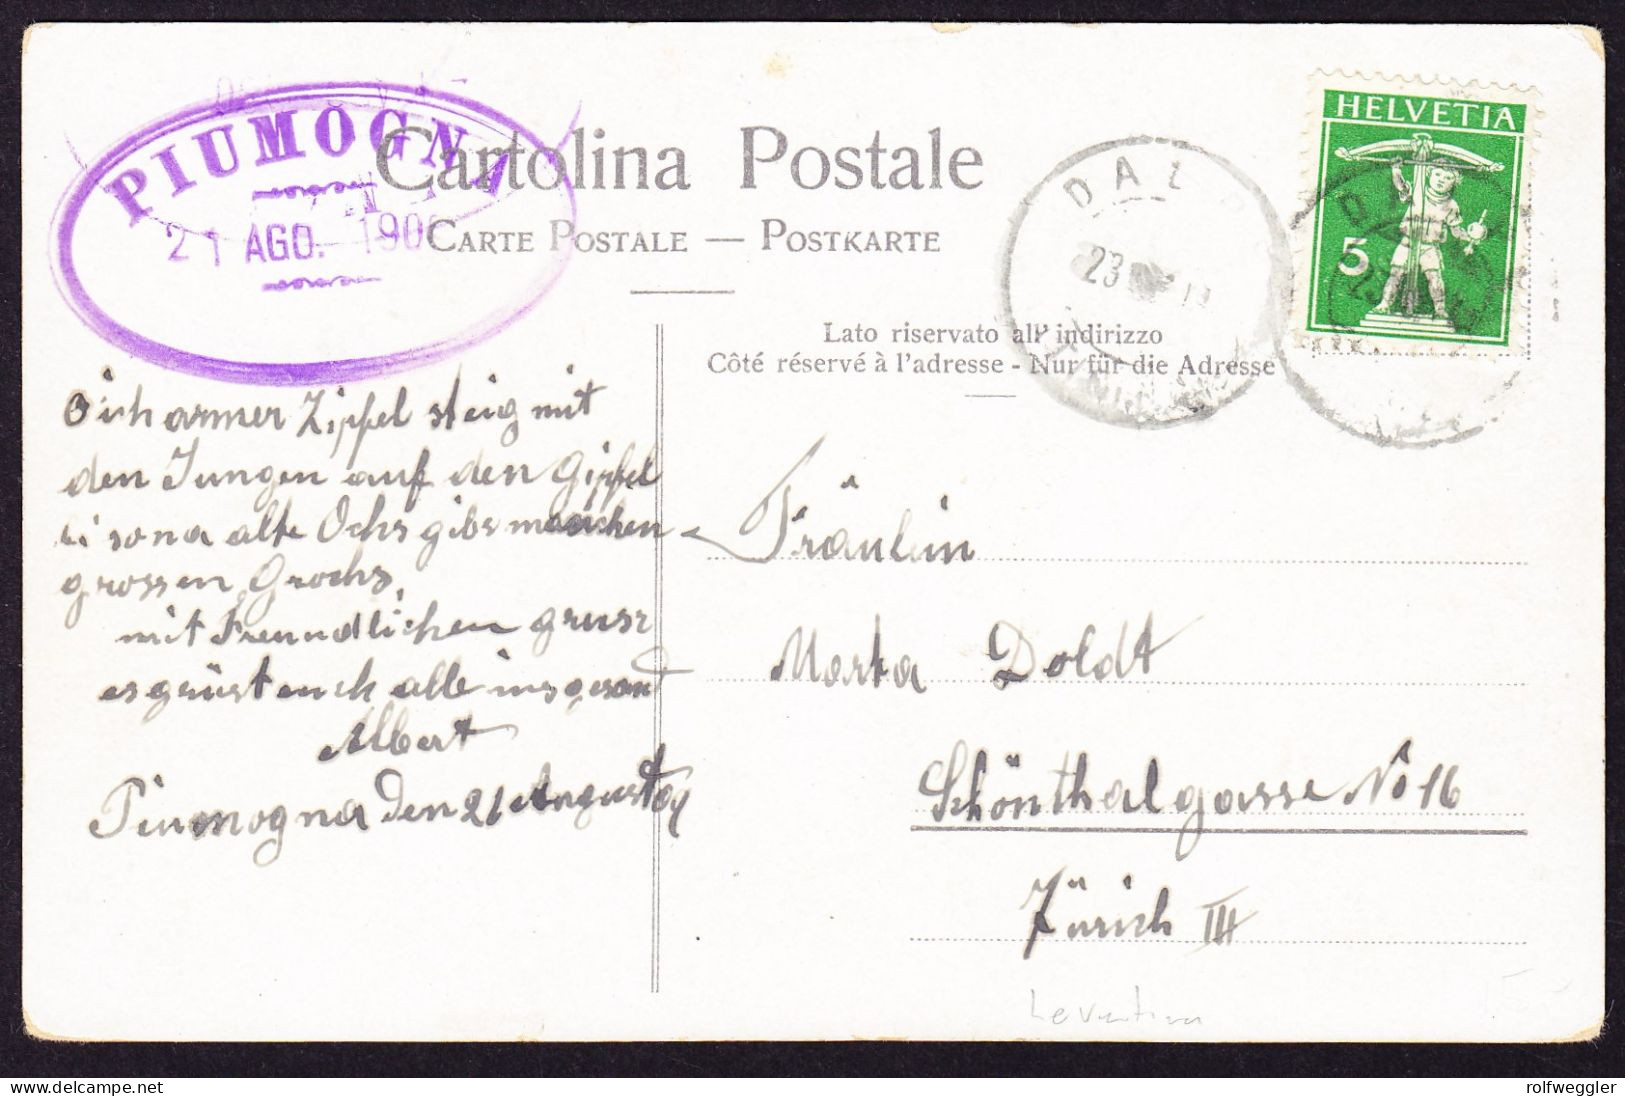 PIUMOGNA
21 AGO. 190
Cartolina Postale
CARTE POSTALE — POSTKARTE
Lato riservato all' indirizzo
Côté réservé à l'adresse - Nur für die Adresse
HELVETIA
5
DALP
23
O ich armer Zipfel steig mit
den Jungen auf den Gipfel
so na alte Ochs gibs machen
grossen Grochs,
mit Freundlichen gruss
es grüst euch alle ins gesamt
Albert
Piumogna den 21 August 09
Fräulein
Marta Doldt
Schönthalgasse No 16
Zürich III
Leventina
delcampe.net
rolfweggler